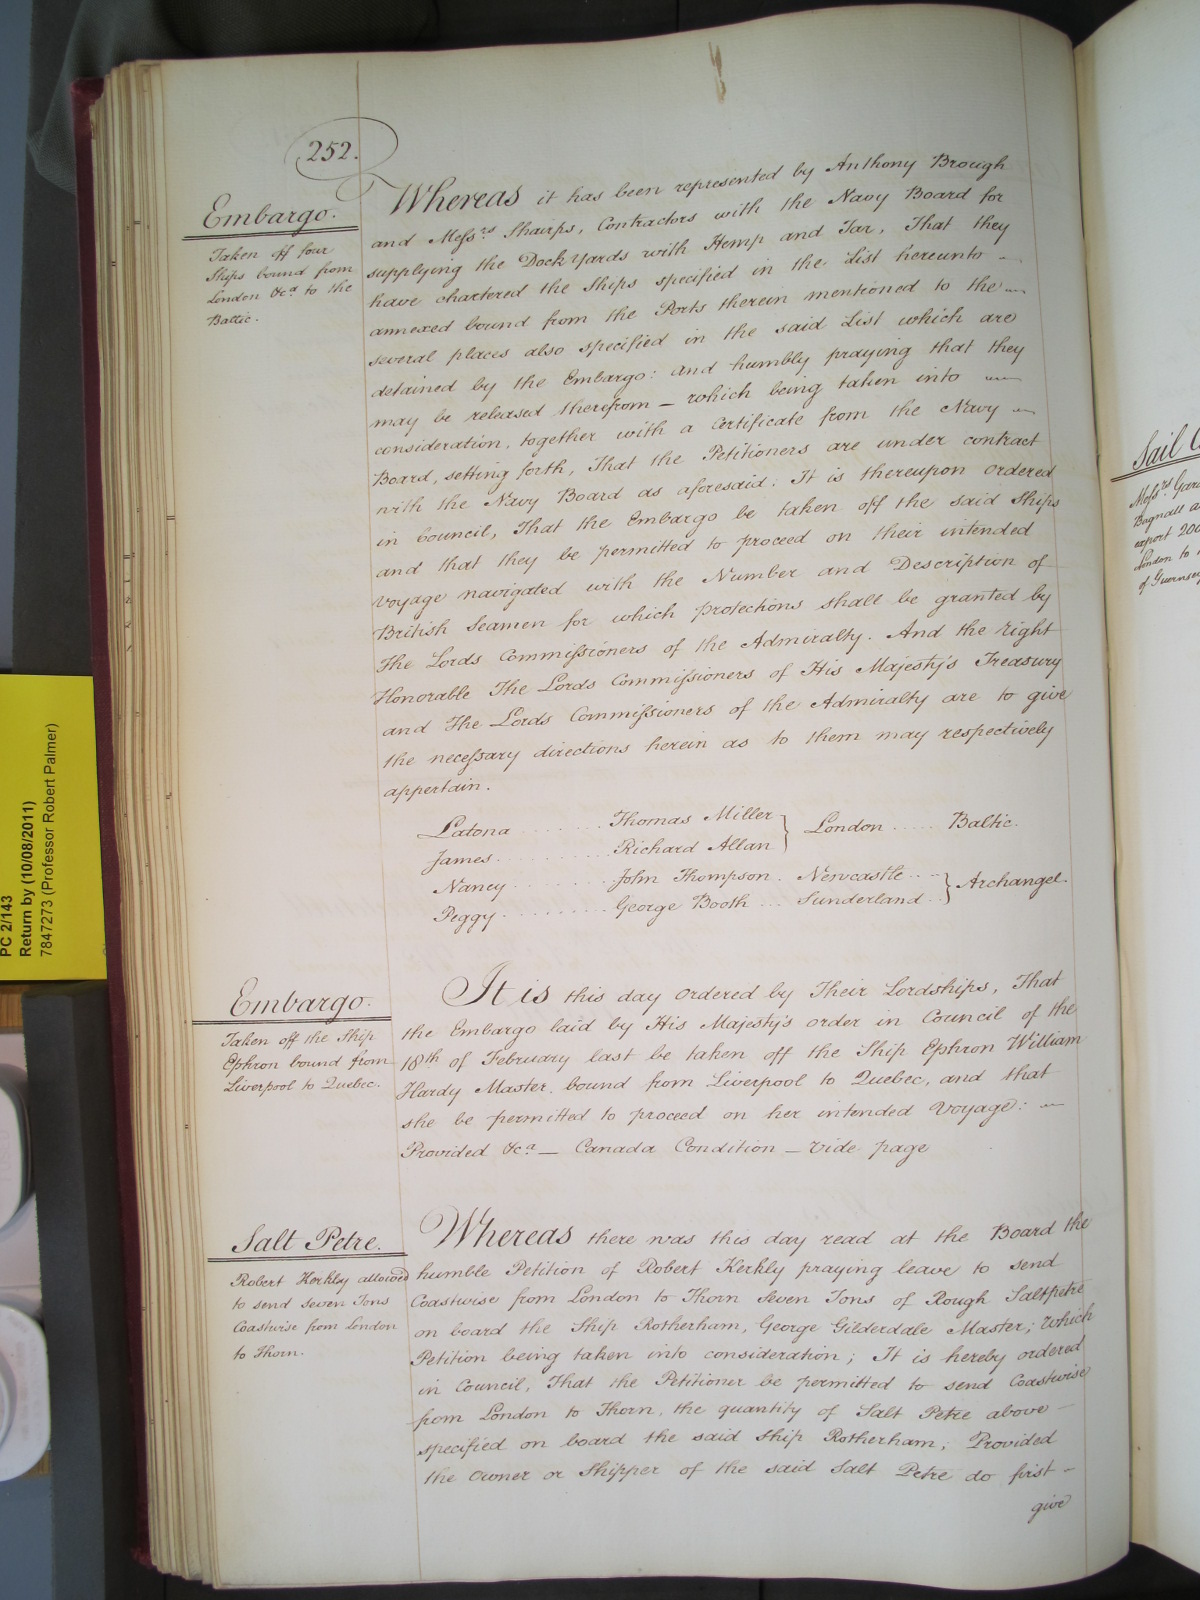 252.
Embargo.
Taken off four
Ships bound from
London &cª to the
Baltic.
Whereas it has been represented by Anthony Brough
and Messrs Shairps, Contractors with the Navy Board for
supplying the Dock Yards with Hemp and Tar, That they
have chartered the Ships specified in the List hereunto
annexed bound from the Ports therein mentioned to the
several places also specified in the said List which are
detained by the Embargo: and humbly praying that they
may be released therefrom — which being taken into
consideration, together with a Certificate from the Navy
Board, setting forth, That the Petitioners are under contract
with the Navy Board as aforesaid: It is thereupon ordered
in Council, That the Embargo be taken off the said Ships
and that they be permitted to proceed on their intended
Voyage navigated with the Number and Description of
British Seamen for which protections shall be granted by
The Lords Commissioners of the Admiralty. And the right
Honorable The Lords Commissioners of His Majesty's Treasury
and The Lords Commissioners of the Admiralty are to give
the necessary directions herein as to them may respectively
appertain.
Latona ....... Thomas Miller } London ..... Baltic.
James ........ Richard Allan
Nancy ........ John Thompson . Newcastle .... } Archangel.
Peggy ........ George Booth ... Sunderland ..
Embargo.
Taken off the Ship
Ephron bound from
Liverpool to Quebec.
It is this day ordered by Their Lordships, That
the Embargo laid by His Majesty's order in Council of the
18th of February last be taken off the Ship Ephron William
Hardy Master, bound from Liverpool to Quebec, and that
she be permitted to proceed on her intended Voyage:
Provided &cª — Canada Condition — vide page
Salt Petre.
Robert Kerkly allowed
to send seven Tons
Coastwise from London
to Thorn.
Whereas there was this day read at the Board the
humble Petition of Robert Kerkly praying leave to send
Coastwise from London to Thorn Seven Tons of Rough Saltpetre
on board the Ship Rotherham, George Gilderdale Master; Which
Petition being taken into consideration; It is hereby ordered
in Council, That the Petitioner be permitted to send Coastwise
from London to Thorn, the quantity of Salt Petre above
specified on board the said Ship Rotherham; Provided
the Owner or Shipper of the said Salt Petre do first
give
Sail
Messrs
Bagnall
export 200
London to
of Guernsey
PC 2/143
Return by (10/08/2011)
7847273 (Professor Robert Palmer)